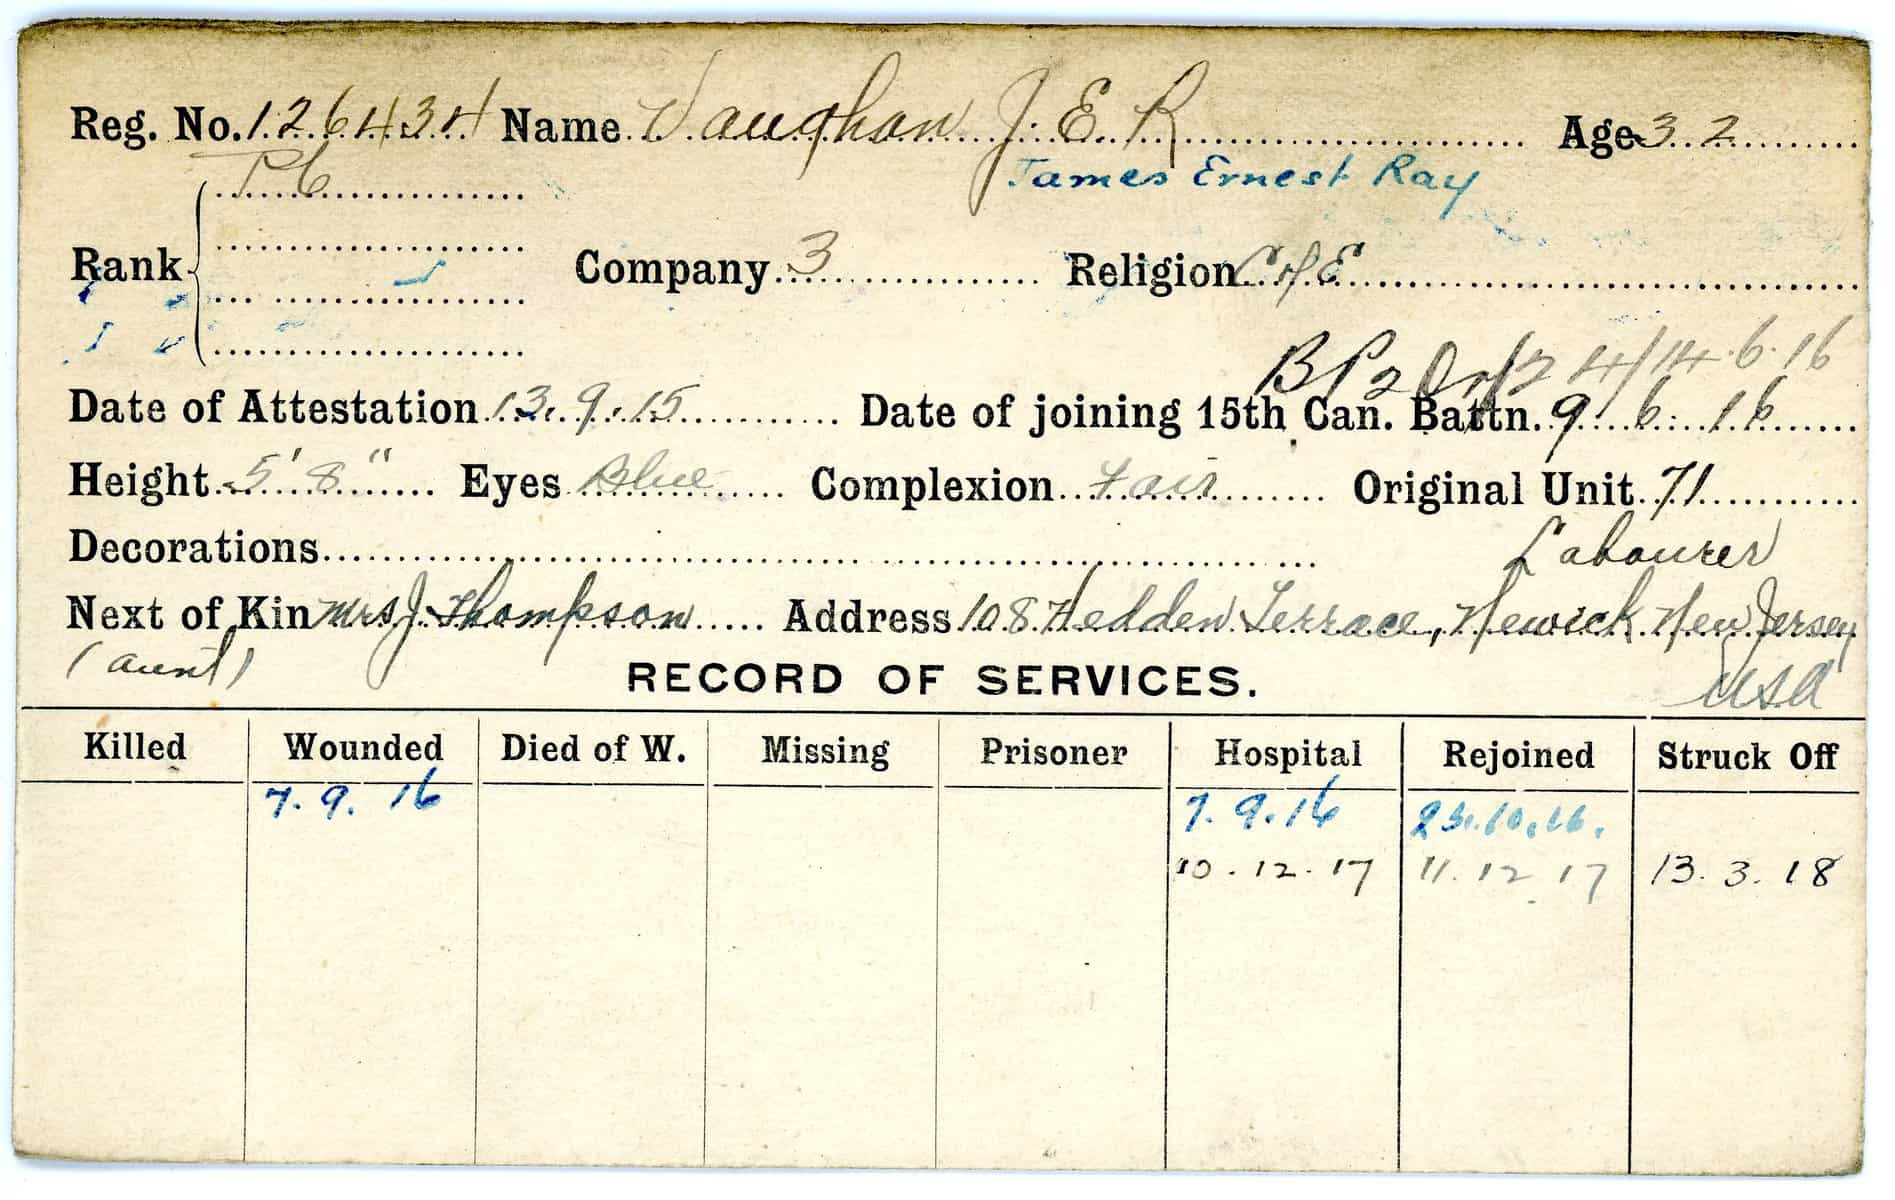 Reg. No. 126434 Name Vaughan J. E. R Age 32
Pte
James Ernest Ray
Rank Company 3 Religion C of E
14.6.16
Date of Attestation 13.9.15 Date of joining 15th Can. Battn. 9.6.16
Height 5'8" Eyes Blue Complexion Fair Original Unit 71
Decorations Labourer
Next of Kin Mrs J. Thompson Address 108 Hedden Terrace, Newick New Jersey
(aunt) USA
RECORD OF SERVICES.
Killed Wounded Died of W. Missing Prisoner Hospital Rejoined Struck Off
7.9.16 7.9.16 23.10.16.
10.12.17 11.12.17 13.3.18